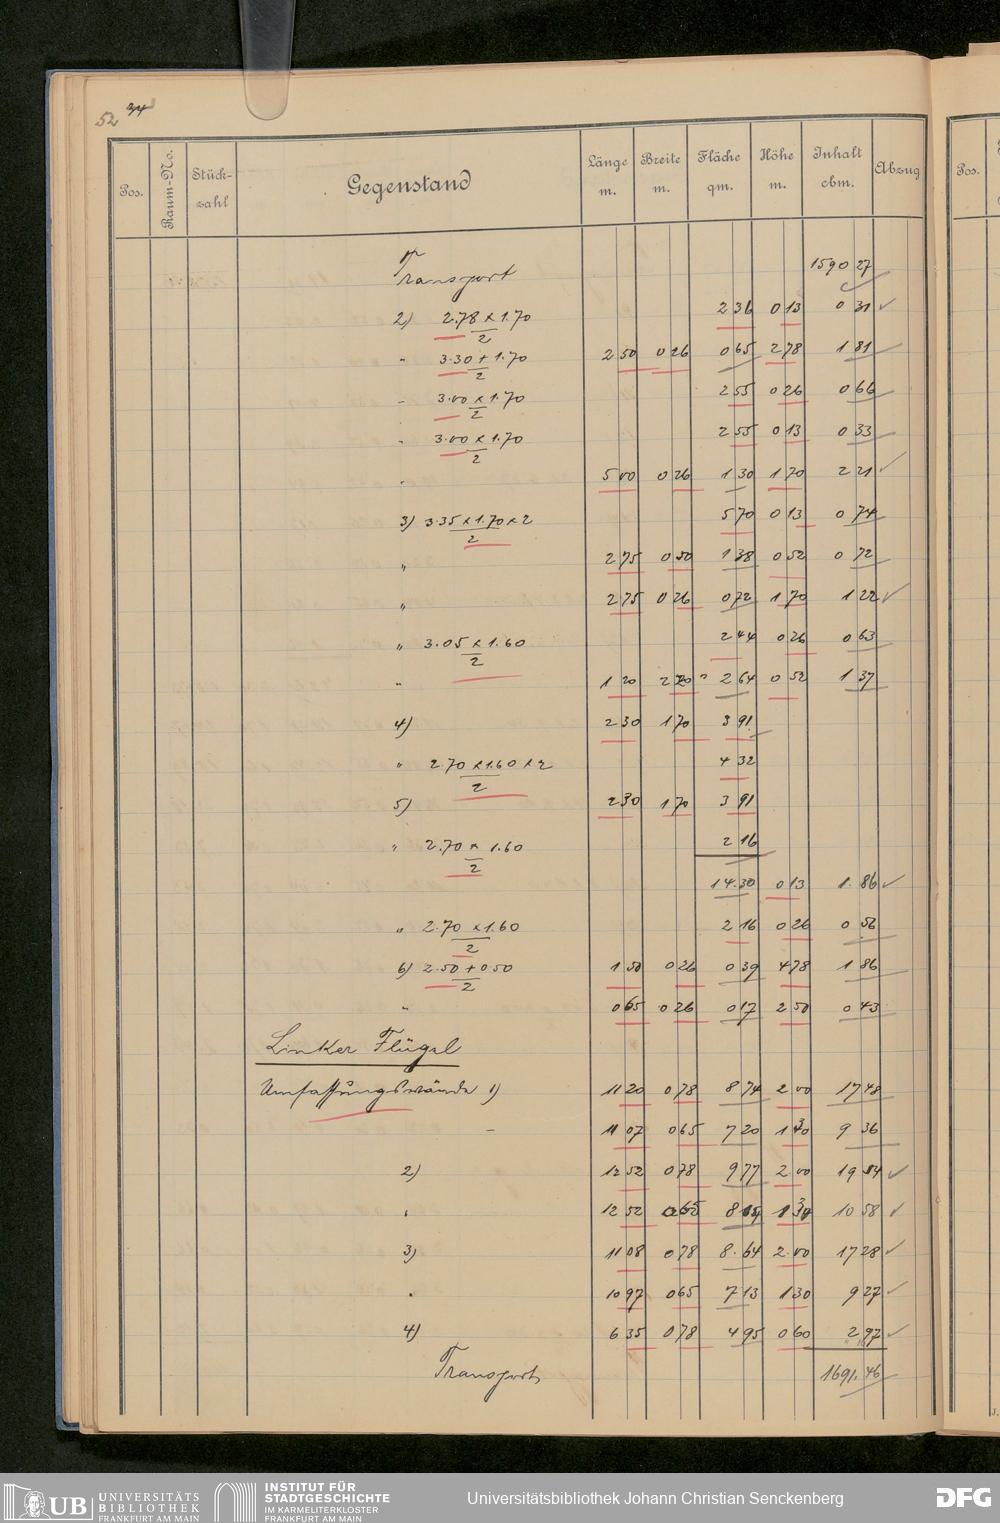 52 34
Pos. Raum-No. Stück-zahl Gegenstand Länge m. Breite m. Fläche qm. Höhe m. Inhalt cbm. Abzug Pos.
Transport 1590 27
2) 2.78 x 1.70 / 2 2 36 0 13 0 31
" 3.30 + 1.70 / 2 2 50 0 26 0 65 2 78 1 81
" 3.00 x 1.70 / 2 2 55 0 26 0 66
" 3.00 x 1.70 / 2 2 55 0 13 0 33
" 5 00 0 26 1 30 1 70 2 21
3) 3.35 x 1.70 x 2 / 2 5 70 0 13 0 74
" 2 75 0 50 1 38 0 52 0 72
" 2 75 0 26 0 72 1 70 1 22
" 3.05 x 1.60 / 2 2 44 0 26 0 63
" 1 20 2 20 2 64 0 52 1 37
4) 2 30 1 70 3 91
" 2.70 x 1.60 x 2 / 2 4 32
5) 2 30 1 70 3 91
" 2.70 x 1.60 / 2 2 16
14.30 0 13 1.86
" 2.70 x 1.60 / 2 2 16 0 26 0 56
6) 2.50 + 0.50 / 2 1 50 0 26 0 39 4 78 1 86
" 0 65 0 26 0 17 2 50 0 43
Linker Flügel
Umfassungswände 1) 11 20 0 78 8 74 2 00 17 48
" 11 07 0 65 7 20 1 30 9 36
2) 12 52 0 78 9 77 2 00 19 54
" 12 52 0 65 8 14 1 30 10 58
3) 11 08 0 78 8.64 2.00 17 28
" 10 97 0 65 7 13 1 30 9 27
4) 6 35 0 78 4 95 0 60 2 97
Transport 1691.46
UB UNIVERSITÄTS
BIBLIOTHEK
FRANKFURT AM MAIN
INSTITUT FÜR
STADTGESCHICHTE
IM KARMELITERKLOSTER
FRANKFURT AM MAIN
Universitätsbibliothek Johann Christian Senckenberg
DFG